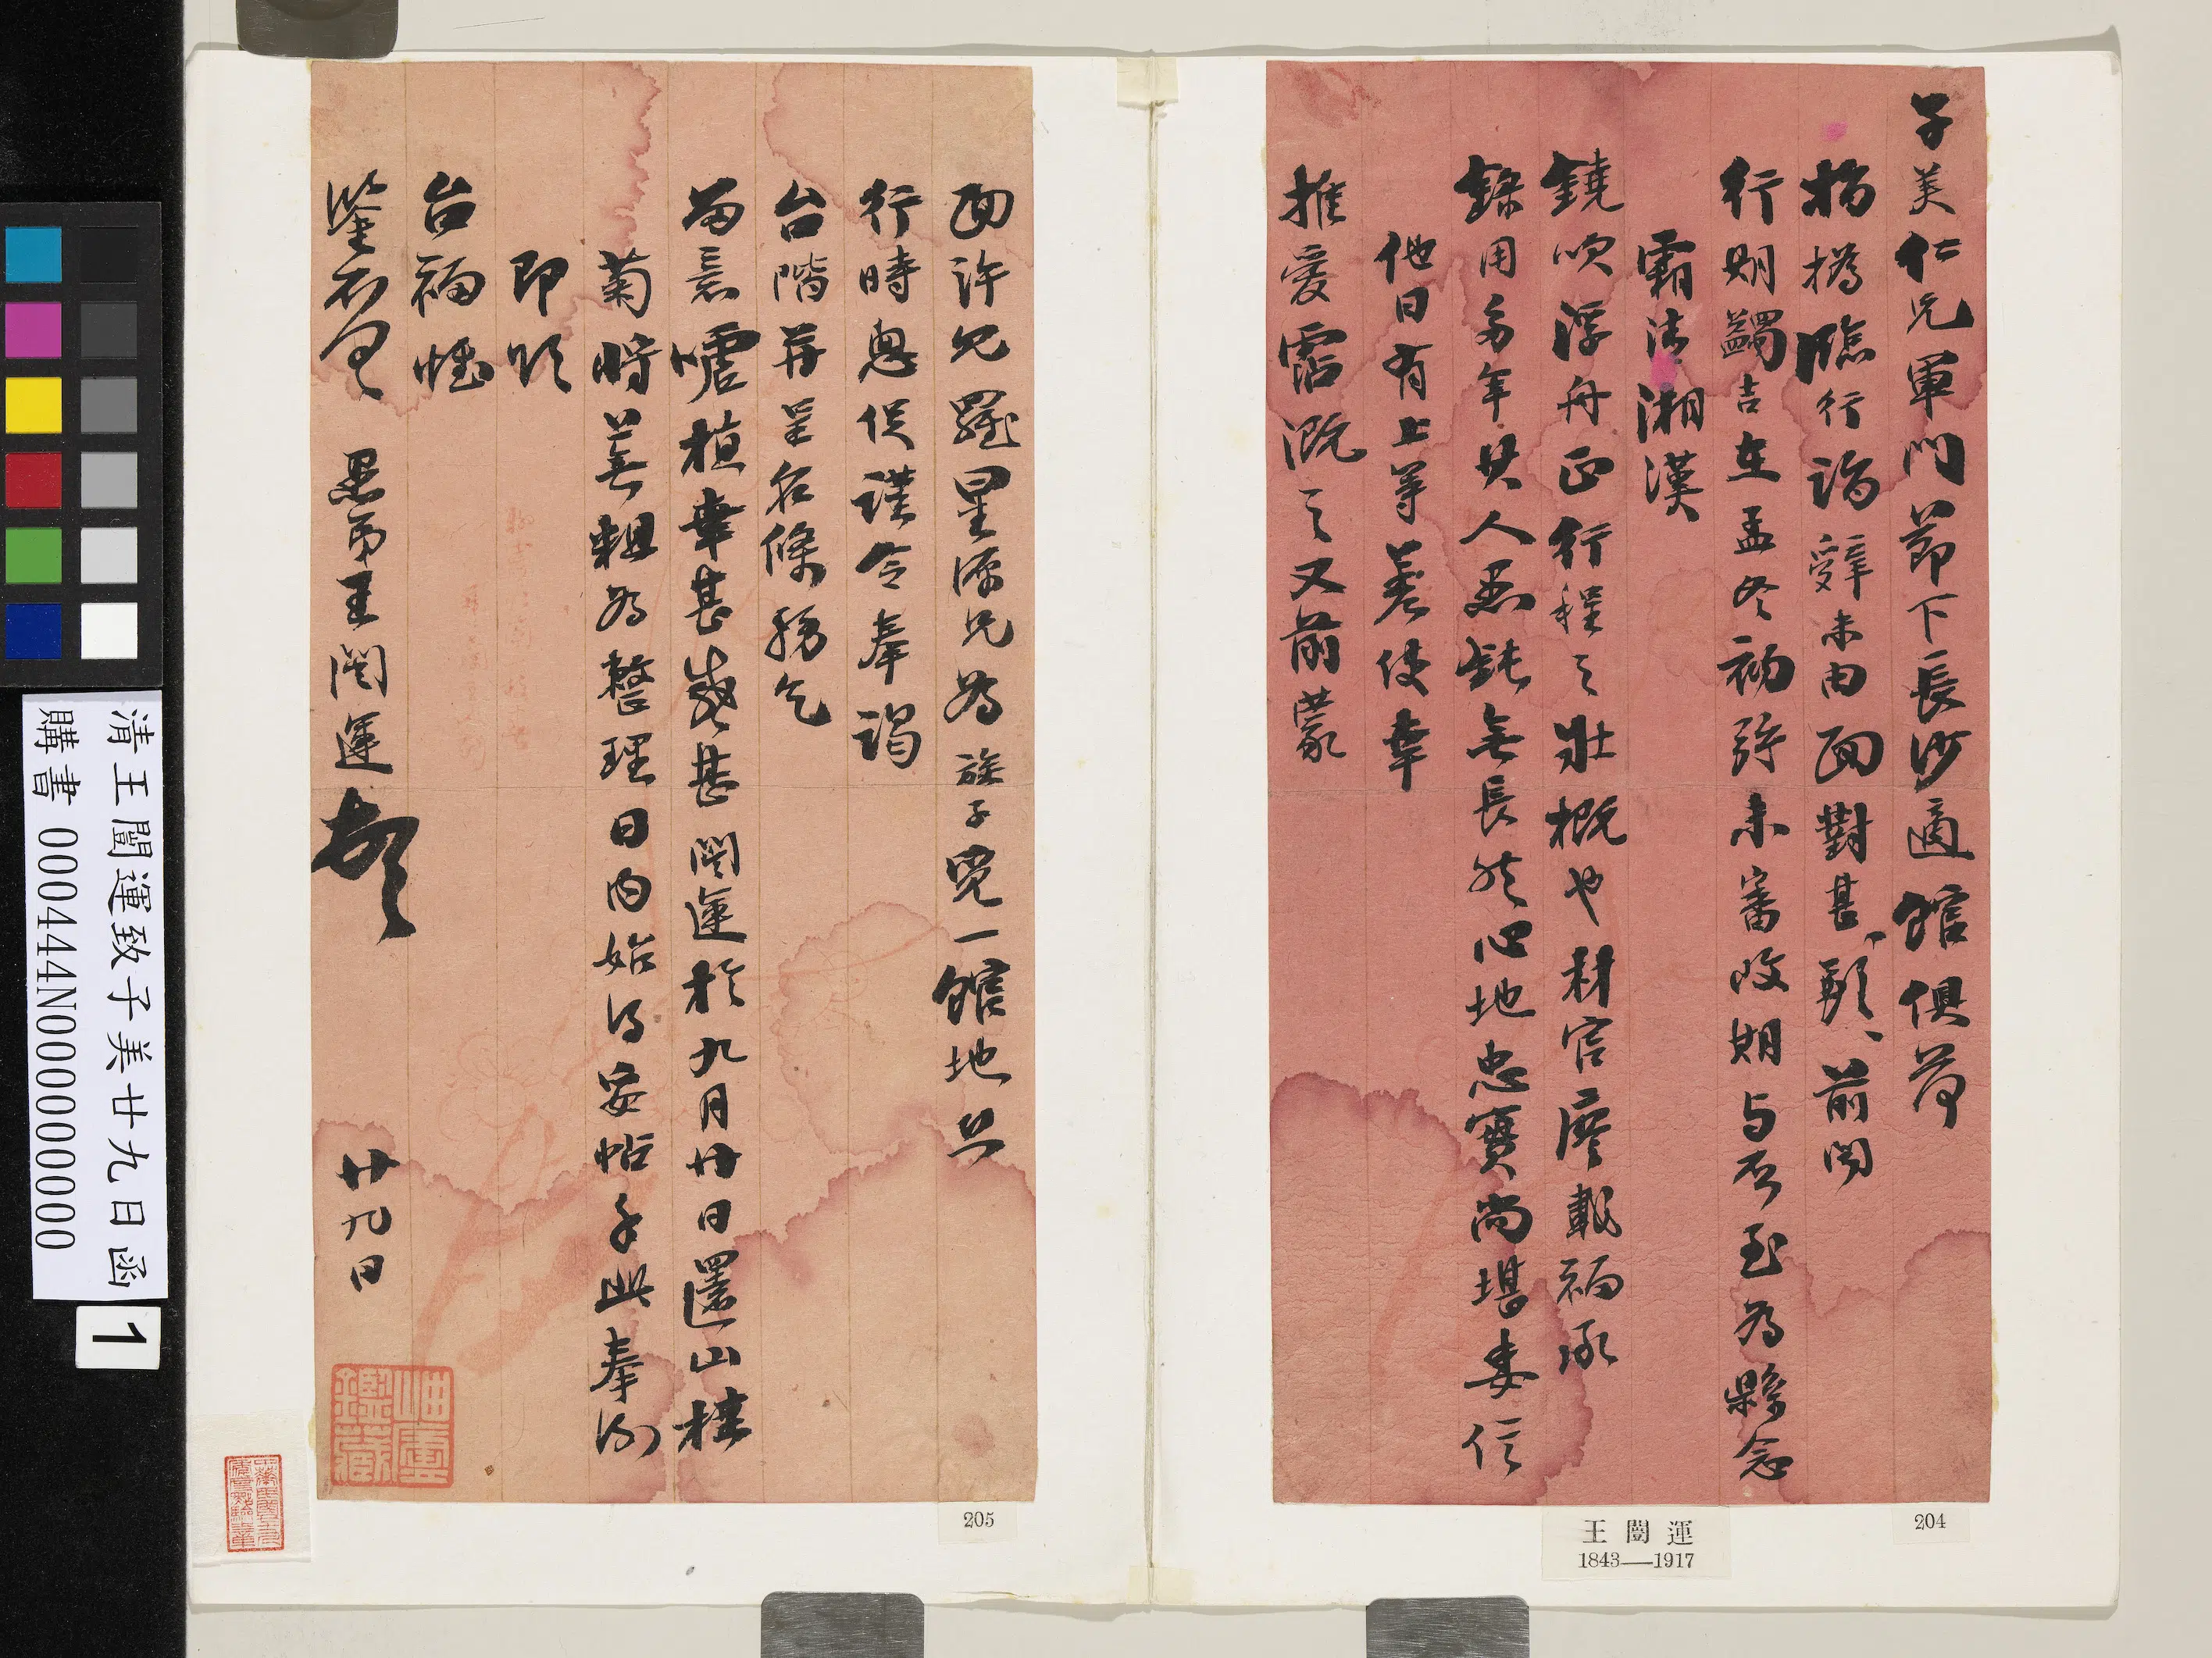 子美仁兄軍門節下長沙適館俱荷
撝撝臨行詣辭未由面對甚歉甚歉前聞
行期蠲吉在孟冬初旬未審改期與否至為縣念
霜清湘漢
鐃吹浮舟正行程之壯概也材官廖載福承
錄用多年其人愚鈍無長然心地忠實尚堪委信
他日有上等差使幸
推愛霑溉之又前蒙
面許允羅星源兄為族子覓一館地昨
行時匆促謹令奉謁
台階并呈名條務乞
留意噓植幸甚感甚闓運於九月廿日還山樓
菊將蕪輯為整理日內始得安帖手此奉泐
即頌
台福恆
鑒不具 愚弟王闓運頓首 廿九日
岫廬鑑藏
204
205
王闓運
1843—1917
清王闓運致子美廿九日函
購書 000444N000000000
1